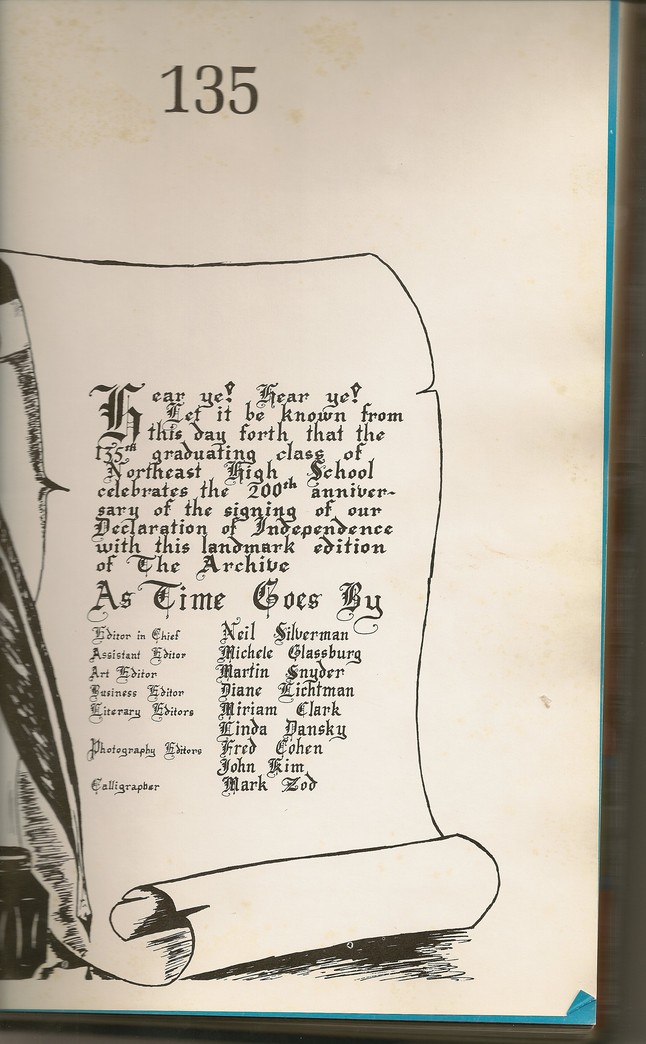 135
Hear ye! Hear ye!
Let it be known from
this day forth, that the
135th graduating class of
Northeast High School
celebrates the 200th anniver-
sary of the signing of our
Declaration of Independence
with this landmark edition
of The Archive
As Time Goes By
Editor in Chief Neil Silverman
Assistant Editor Michele Glassburg
Art Editor Martin Snyder
Business Editor Diane Lichtman
Literary Editors Miriam Clark
Linda Dansky
Photography Editors Fred Cohen
John Kim
Calligrapher Mark Zod